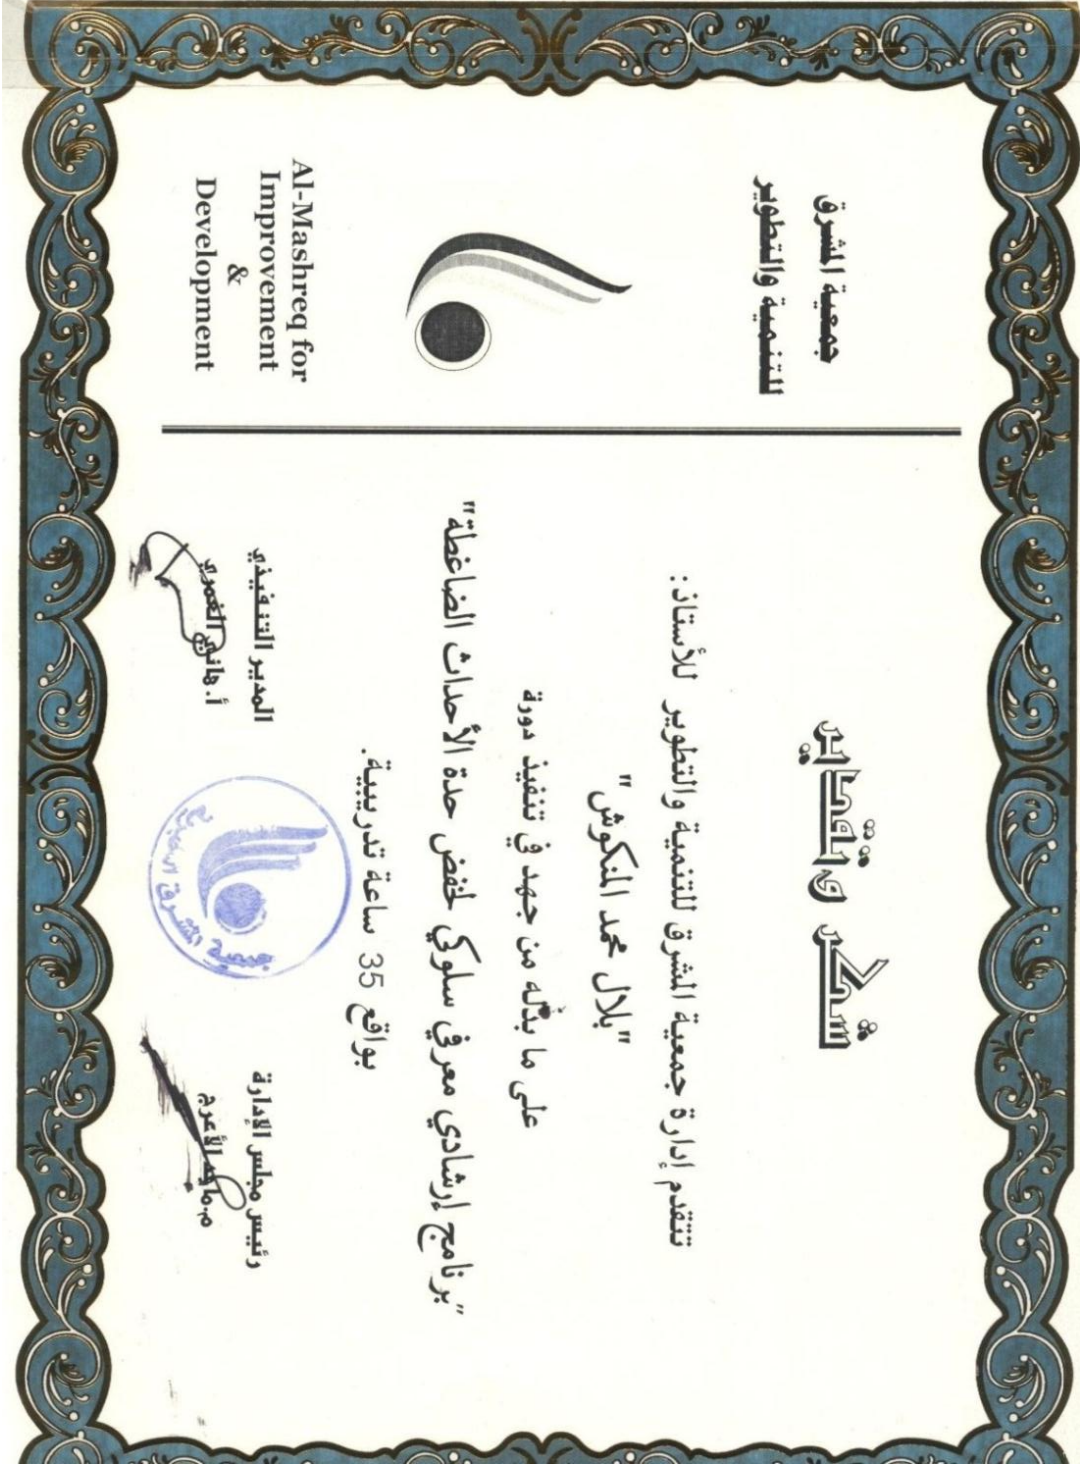 جمعية المشرق
للتنمية والتطوير
Al-Mashreq for
Improvement
&
Development
شكر وتقدير
تتقدم إدارة جمعية المشرق للتنمية والتطوير للأستاذ:
"بلال محمد المنكوش"
على ما بذله من جهد في تنفيذ دورة
"برنامج إرشادي معرفي سلوكي لخفض حدة الأحداث الضاغطة"
بواقع 35 ساعة تدريبية.
رئيس مجلس الإدارة
م.ماجد الأعرج
المدير التنفيذي
أ.هاني الغمري
جمعية المشرق